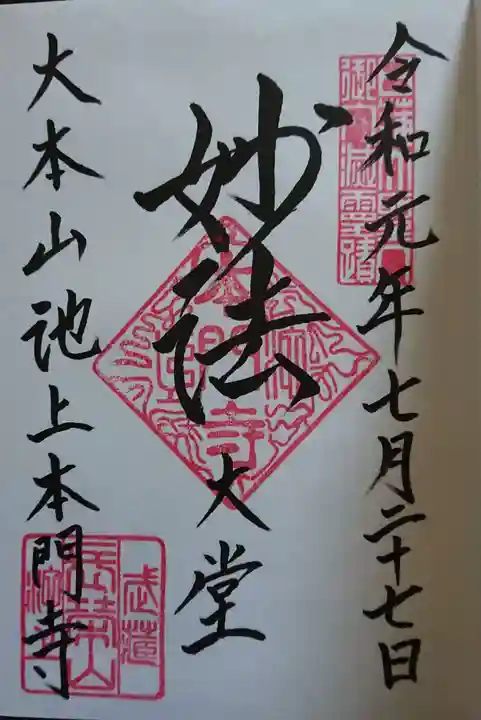 令和元年七月二十七日
妙法
大堂
大本山池上本門寺